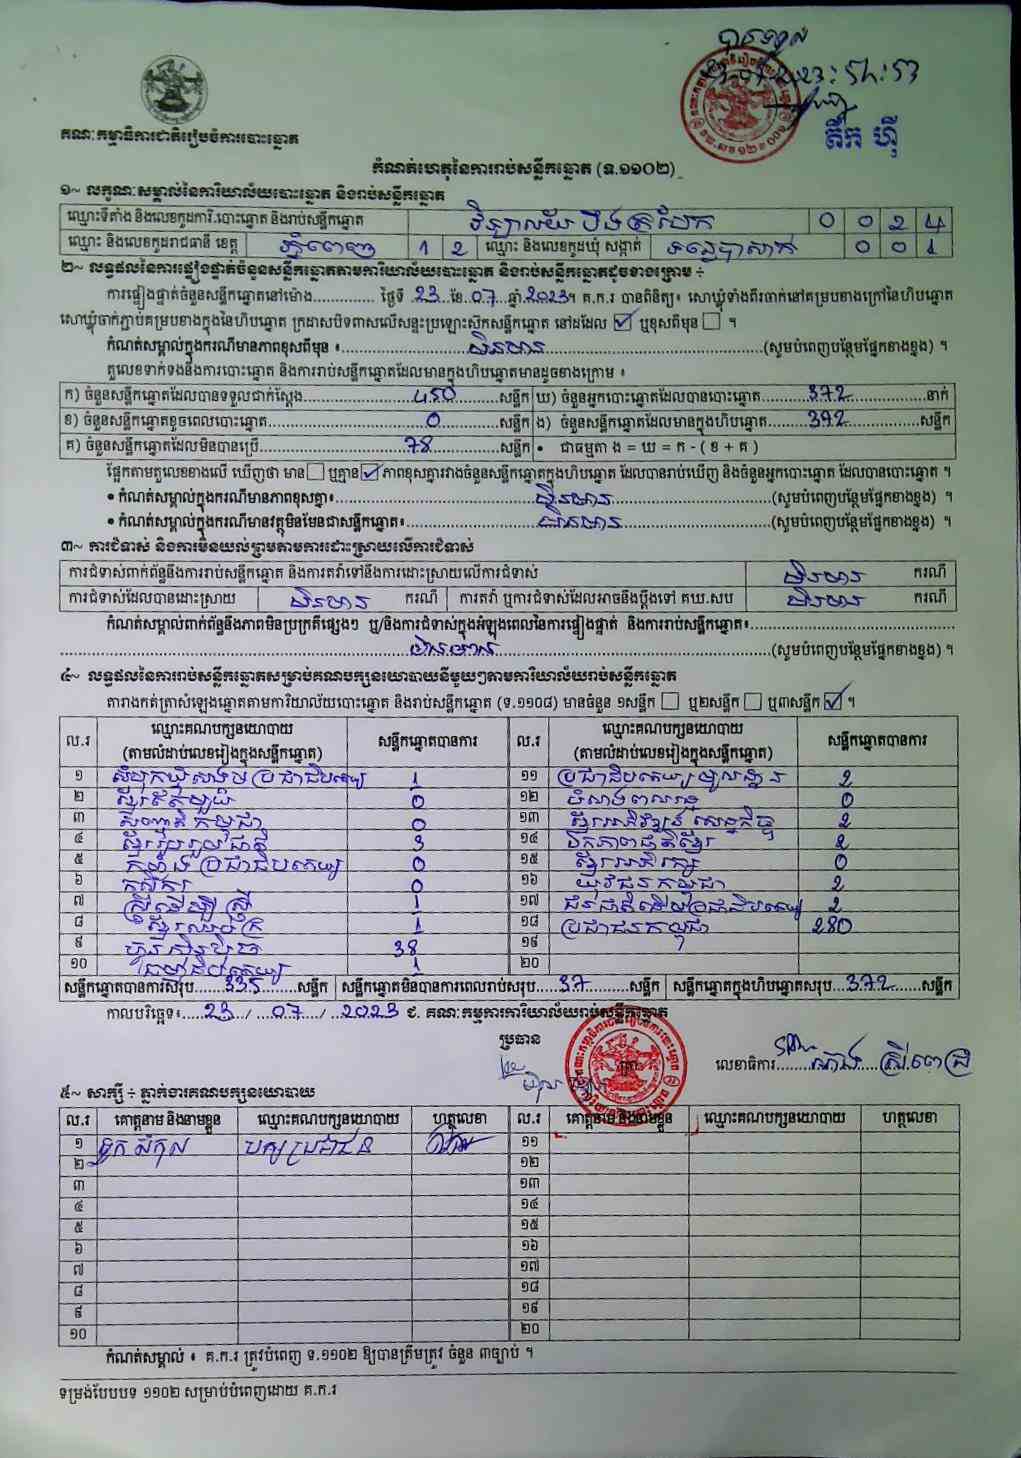 បានទទួល
តឹក ហ៊ី
គណៈកម្មាធិការជាតិរៀបចំការបោះឆ្នោត
កំណត់ហេតុនៃការរាប់សន្លឹកឆ្នោត (ទ.១១០២)
១~ លក្ខណៈសម្គាល់នៃការិយាល័យបោះឆ្នោត និងរាប់សន្លឹកឆ្នោត
ឈ្មោះទីតាំង និងលេខកូដការិ.បោះឆ្នោត និងរាប់សន្លឹកឆ្នោត វិទ្យាល័យ បឹងត្របែក 0 0 2 4
ឈ្មោះ និងលេខកូដរាជធានី ខេត្ត ភ្នំពេញ 1 2 ឈ្មោះ និងលេខកូដឃុំ សង្កាត់ ទន្លេបាសាក់ 0 0 1
២~ លទ្ធផលនៃការផ្ទៀងផ្ទាត់ចំនួនសន្លឹកឆ្នោតតាមការិយាល័យបោះឆ្នោត និងរាប់សន្លឹកឆ្នោតដូចខាងក្រោម ÷
ការផ្ទៀងផ្ទាត់ចំនួនសន្លឹកឆ្នោតនៅម៉ោង.............. ថ្ងៃទី 23 ខែ 07 ឆ្នាំ 2023។ គ.ក.រ បានពិនិត្យ៖ សោឃ្លុំទាំងពីរចាក់នៅគម្របខាងក្រៅនៃហិបឆ្នោត
សោឃ្លុំចាក់ភ្ជាប់គម្របខាងក្នុងនៃហិបឆ្នោត ក្រដាសបិទពាសលើសន្ទះប្រឡោះស៊កសន្លឹកឆ្នោត នៅដដែល ☑ ឬខុសពីមុន ☐ ។
កំណត់សម្គាល់ក្នុងករណីមានភាពខុសពីមុន ៖ មិនមាន (សូមបំពេញបន្ថែមផ្នែកខាងខ្នង) ។
តួលេខទាក់ទងនឹងការបោះឆ្នោត និងការរាប់សន្លឹកឆ្នោតដែលមានក្នុងហិបឆ្នោតមានដូចខាងក្រោម ៖
ក) ចំនួនសន្លឹកឆ្នោតដែលបានទទួលជាក់ស្តែង 450 សន្លឹក ឃ) ចំនួនអ្នកបោះឆ្នោតដែលបានបោះឆ្នោត 372 នាក់
ខ) ចំនួនសន្លឹកឆ្នោតខូចពេលបោះឆ្នោត 0 សន្លឹក ង) ចំនួនសន្លឹកឆ្នោតដែលមានក្នុងហិបឆ្នោត 372 សន្លឹក
គ) ចំនួនសន្លឹកឆ្នោតដែលមិនបានប្រើ 78 សន្លឹក • ជាធម្មតា ង = ឃ = ក - ( ខ + គ )
ផ្អែកតាមតួលេខខាងលើ ឃើញថា មាន ☐ ឬគ្មាន ☑ ភាពខុសគ្នារវាងចំនួនសន្លឹកឆ្នោតក្នុងហិបឆ្នោត ដែលបានរាប់ឃើញ និងចំនួនអ្នកបោះឆ្នោត ដែលបានបោះឆ្នោត ។
• កំណត់សម្គាល់ក្នុងករណីមានភាពខុសគ្នា៖ មិនមាន (សូមបំពេញបន្ថែមផ្នែកខាងខ្នង) ។
• កំណត់សម្គាល់ក្នុងករណីមានវត្ថុមិនមែនជាសន្លឹកឆ្នោត៖ មិនមាន (សូមបំពេញបន្ថែមផ្នែកខាងខ្នង) ។
៣~ ការជំទាស់ និងការមិនយល់ព្រមតាមការដោះស្រាយលើការជំទាស់
ការជំទាស់ពាក់ព័ន្ធនឹងការរាប់សន្លឹកឆ្នោត និងការតវ៉ាទៅនឹងការដោះស្រាយលើការជំទាស់ មិនមាន ករណី
ការជំទាស់ដែលបានដោះស្រាយ មិនមាន ករណី ការតវ៉ា ឬការជំទាស់ដែលអាចនឹងប្តឹងទៅ គឃ.សប មិនមាន ករណី
កំណត់សម្គាល់ពាក់ព័ន្ធនឹងភាពមិនប្រក្រតីផ្សេងៗ ឬ/និងការជំទាស់ក្នុងអំឡុងពេលនៃការផ្ទៀងផ្ទាត់ និងការរាប់សន្លឹកឆ្នោត៖
មិនមាន (សូមបំពេញបន្ថែមផ្នែកខាងខ្នង) ។
៤~ លទ្ធផលនៃការរាប់សន្លឹកឆ្នោតសម្រាប់គណបក្សនយោបាយនីមួយៗតាមការិយាល័យរាប់សន្លឹកឆ្នោត
តារាងកត់ត្រាសំឡេងឆ្នោតតាមការិយាល័យបោះឆ្នោត និងរាប់សន្លឹកឆ្នោត (ទ.១១០៨) មានចំនួន ១សន្លឹក ☐ ឬ២សន្លឹក ☐ ឬ៣សន្លឹក ☑ ។
ល.រ ឈ្មោះគណបក្សនយោបាយ (តាមលំដាប់លេខរៀងក្នុងសន្លឹកឆ្នោត) សន្លឹកឆ្នោតបានការ ល.រ ឈ្មោះគណបក្សនយោបាយ (តាមលំដាប់លេខរៀងក្នុងសន្លឹកឆ្នោត) សន្លឹកឆ្នោតបានការ
១ សំបុកឃ្មុំសង្គមប្រជាធិបតេយ្យ 1 ១១ ប្រជាធិបតេយ្យមូលដ្ឋាន 2
២ ខ្មែរឥតមួយ 0 ១២ ធំរង់ពលរដ្ឋ 0
៣ សញ្ជាតិកម្ពុជា 0 ១៣ ខ្មែរអភិវឌ្ឍន៍សេដ្ឋកិច្ច 2
៤ ខ្មែររួបរួមជាតិ 3 ១៤ ឯកភាពជាតិខ្មែរ 2
៥ កម្លាំងប្រជាធិបតេយ្យ 0 ១៥ ខ្មែរអភិរក្ស 0
៦ កសិករ 0 ១៦ យុវជនកម្ពុជា 2
៧ ស្ត្រីដើម្បីស្ត្រី 1 ១៧ ជនជាតិដើមប្រជាធិបតេយ្យ 2
៨ ខ្មែរឈប់ក្រ 1 ១៨ ប្រជាជនកម្ពុជា 280
៩ ហ្វ៊ុនស៊ិនប៉ិច 38 ១៩
១០ ធម្មាធិបតេយ្យ 1 ២០
សន្លឹកឆ្នោតបានការសរុប 335 សន្លឹក សន្លឹកឆ្នោតមិនបានការពេលរាប់សរុប 37 សន្លឹក សន្លឹកឆ្នោតក្នុងហិបឆ្នោតសរុប 372 សន្លឹក
កាលបរិច្ឆេទ៖ 23 / 07 / 2023 ៩. គណៈកម្មការការិយាល័យរាប់សន្លឹកឆ្នោត
ប្រធាន លេខាធិការ
៥~ សាក្សី ÷ ភ្នាក់ងារគណបក្សនយោបាយ
ល.រ គោត្តនាម និងនាមខ្លួន ឈ្មោះគណបក្សនយោបាយ ហត្ថលេខា ល.រ គោត្តនាម និងនាមខ្លួន ឈ្មោះគណបក្សនយោបាយ ហត្ថលេខា
១ ទូក សំកុល បក្សប្រជាជន ១១
២ ១២
៣ ១៣
៤ ១៤
៥ ១៥
៦ ១៦
៧ ១៧
៨ ១៨
៩ ១៩
១០ ២០
កំណត់សម្គាល់ ៖ គ.ក.រ ត្រូវបំពេញ ទ.១១០២ ឱ្យបានត្រឹមត្រូវ ចំនួន ៣ច្បាប់ ។
ទម្រង់បែបបទ ១១០២ សម្រាប់បំពេញដោយ គ.ក.រ